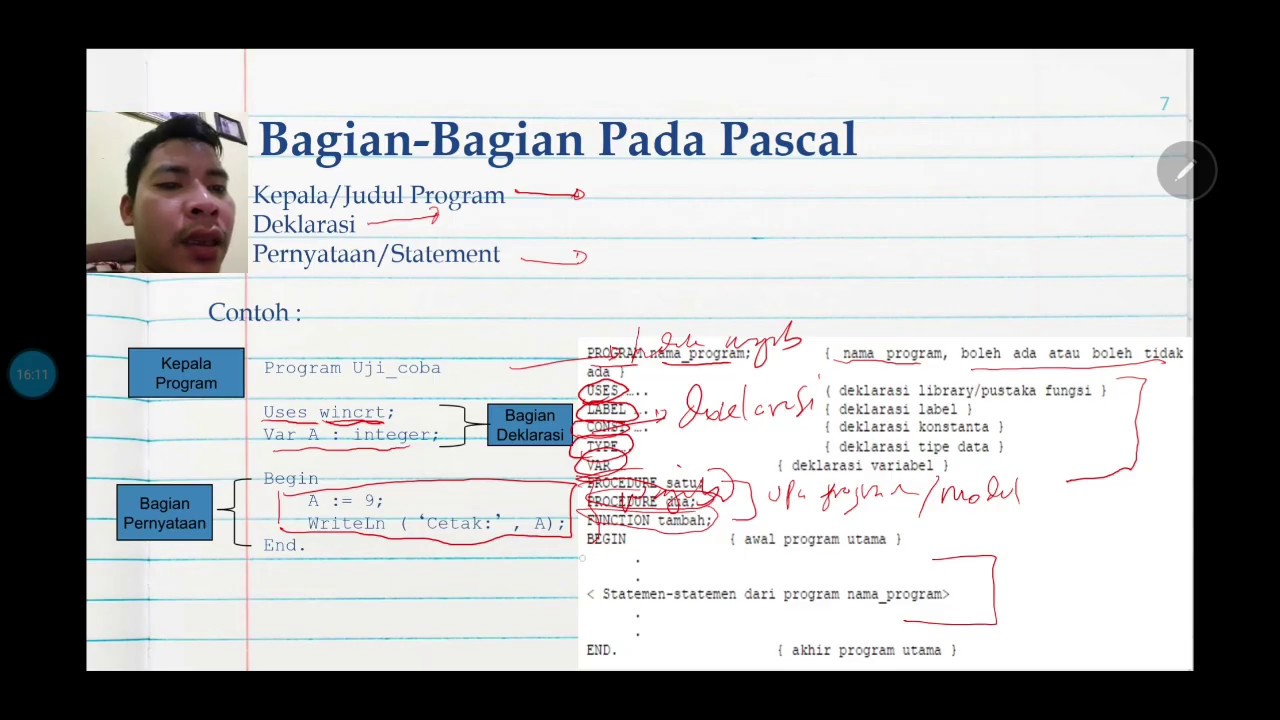 7
Bagian-Bagian Pada Pascal
Kepala/Judul Program
Deklarasi
Pernyataan/Statement
Contoh :
Kepala
Program
Program Uji_coba
Uses wincrt;
Var A : integer;
Bagian
Deklarasi
Bagian
Pernyataan
Begin
A := 9;
WriteLn ( ‘Cetak:’ , A);
End.
16:11
PROGRAM nama_program; { nama program, boleh ada atau boleh tidak
ada }
USES .... { deklarasi library/pustaka fungsi }
LABEL ... { deklarasi label }
CONST .... { deklarasi konstanta }
TYPE { deklarasi tipe data }
VAR { deklarasi variabel }
Deklarasi
PROCEDURE satu;
PROCEDURE dua;
FUNCTION tambah;
program/modul
BEGIN { awal program utama }
.
.
< Statemen-statemen dari program nama_program>
.
.
END. { akhir program utama }